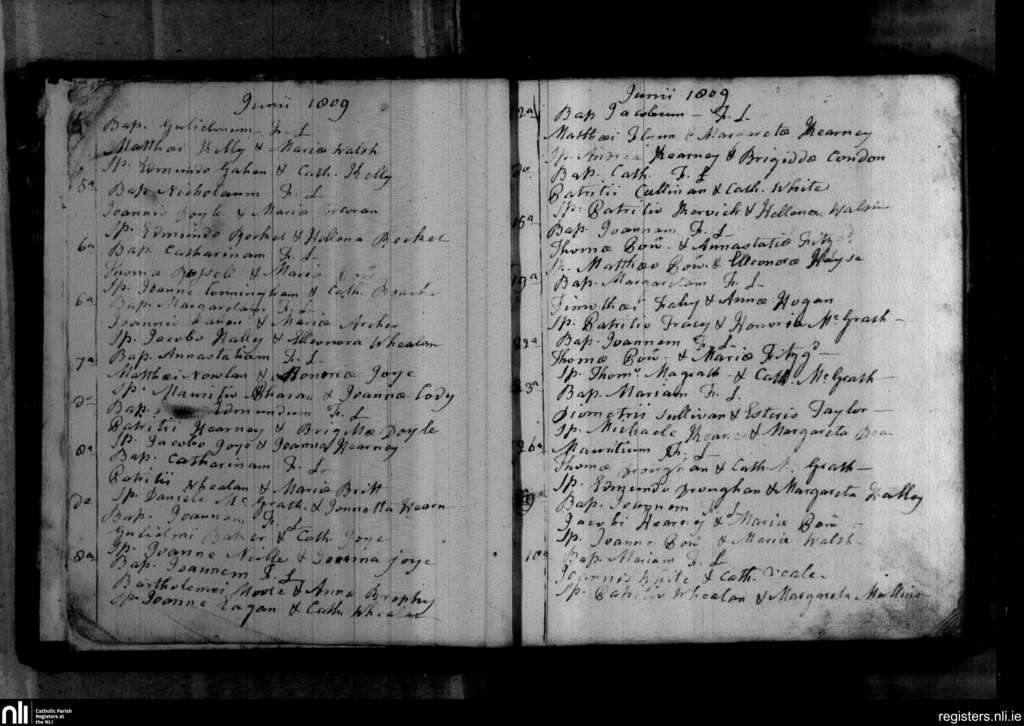 Junii 1809
Bap. Gulielmum F. L
Matthæi Kelly & Mariæ Walsh
Sp. Edmundo Gahan & Cath. Kelly
5a Bap. Nicholaum F. L
Joannis Doyle & Mariæ
Sp. Edmundo Rocket & Hellena Rocket
6a Bap. Catharinam F. L
Thomæ & Mariæ
Sp. Joanne Cunningham & Cath. Roache
6a Bap. Margaretam F. L
Joannis & Mariæ Archer
Sp. Jacobo Halley & Elleonora Whealan
7a Bap. Annastatiam F. L
Matthæi Nowlan & Honoriæ Joye
Sp. Mauritio & Joannæ Cody
Do Bap. Edmundum F. L
Patritii Kearney & Brigittæ Doyle
Sp. Jacobo Joye & Joanna Kearney
8a Bap. Catharinam F. L
Patritii Whealan & Mariæ Britt
Sp. Daniele Mc Grath & Jonnetta
Do Bap. Joannem F. L
Gulielmi & Cath. Joye
Sp. Joanne Neille & Joanna Joye
8a Bap. Joannem F. L
Bartholemei Moore & Anna Brophy
Sp. Joanne Eagan & Cath. Whealan
Junii 1809
12a Bap. Jacobum F. L
Matthæi Flinn & Margaretæ Kearney
Sp. Andrea Kearney & Brigidda Condon
Do Bap. Cath. F. L
Patritii Cullinan & Cath. White
Sp. Patritio Kervick & Hellena Walsh
15a Bap. Joannam F. L
Thomæ Bow. & Annastatiæ Fitzg
Sp. Matthæo Bow. & Elleonora Hayse
19a Bap. Margaretam F. L
Timothæi Fahy & Annæ Hogan
Sp. Patritio Tracy & Honoria McGrath
22a Bap. Joannem F. L
Thomæ Bow. & Mariæ Fitzg
Sp. Thoms. Magrath & Cath. McGrath
23a Bap. Mariam F. L
Diometrii Sullivan & Esteris Taylor
Sp. Michaele & Margareta
26a Mauritium F. L
Thomæ Droughan & Cath. Mc Grath
Sp. Edmundo Droughan & Margareta Halley
Bap. Joannem F. L
Jacobi Kearney & Mariæ Bow
Sp. Joanne Bow. & Maria Walsh
Bap. Mariam F. L
Joannis White & Cath. Veale
Sp. Patritio Whealan & Margareta Mullins
nli Catholic Parish
Registers at
the NLI
registers.nli.ie